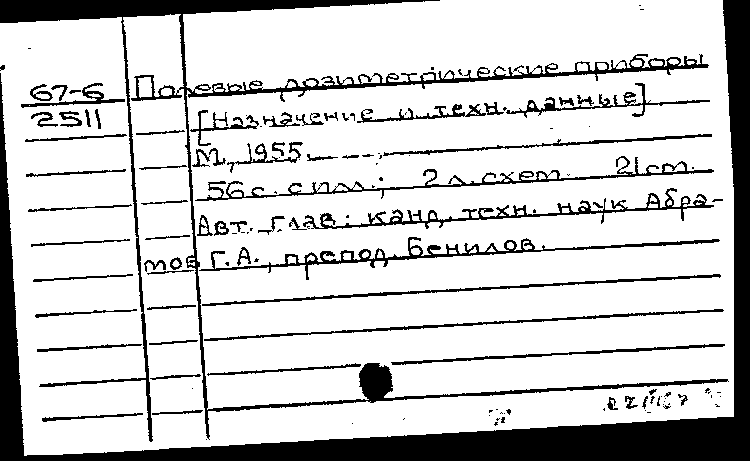 67-6 Полевые дозиметрические приборы
2511 [Назначение и техн. данные]
М., 1955.
56 с. с илл.; 2 л. схем. 21 см.
Авт. глав: канд. техн. наук Абра-
мов Г.А., препод. Бенилов.